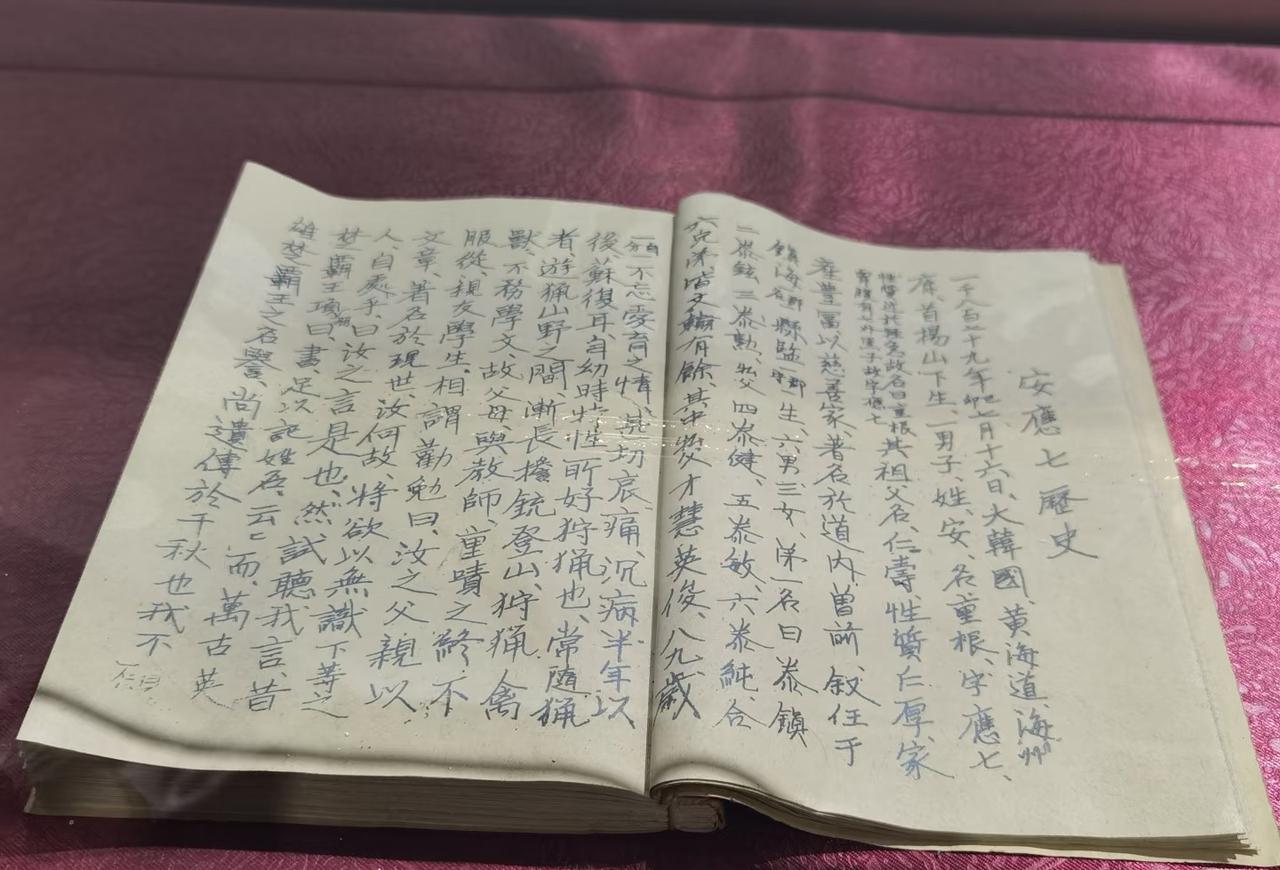 安應七歷史
一千八百七十九年己卯七月十六日、大韓國、黃海道、海州
府、首揚山下生、一男子、姓、安、名重根、字應七、
性質近於輕急故名曰重根
胸腹有七介黑子故字應七
其祖父名、仁壽、性質仁厚、家
產豊富、以慈善家著名於道內、曾前、敘任于
鎮海郡縣監、生、六男、三女、第一名曰泰鎮
二泰鉉、三泰勳、父 四泰健、五泰敏、六泰純、合
六兄弟皆文翰有餘、其中父才慧英俊、八九歲
不忘愛育之情、甚切哀痛、沉病半年以
後蘇復耳、自幼時特性所好狩猟也、常隨猟
者、遊猟山野之間、漸長擔銃登山、狩猟禽
獸、不務學文、故父母與教師、重蹟之、終不
服從、親友學生、相謂勸勉曰、汝之父親以
文章、著名於現世、汝何故、將欲以無識下等之
人、自處乎、曰汝之言是也、然、試聽我言、昔
楚霸王項羽曰、書、足以記姓名、云云而、萬古英
雄楚霸王之名譽、尚遺傳於千秋也我不